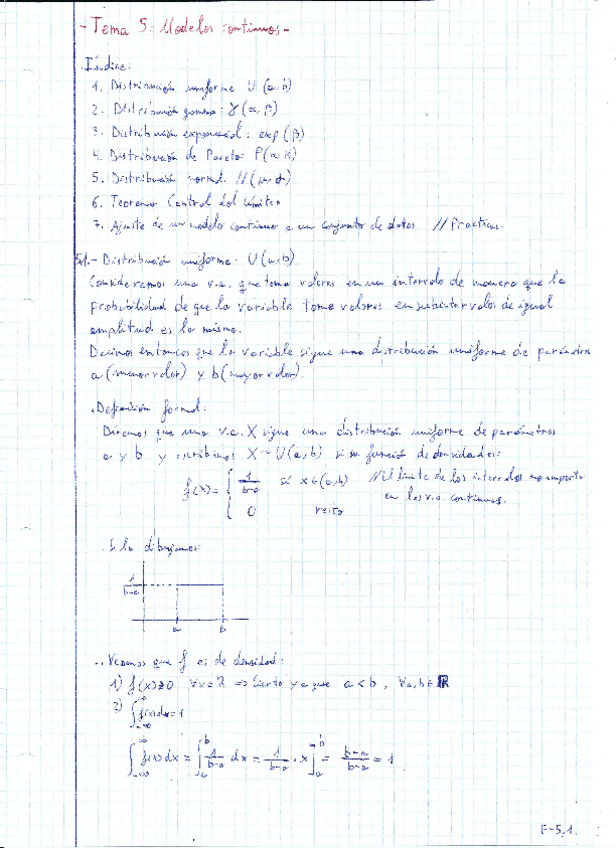 - Tema 5: Modelos continuos -
Índice:
1. Distribución uniforme U (a,b)
2. Distribución gamma: γ(α,β)
3. Distribución exponencial: exp(β)
4. Distribución de Pareto: P(α,k)
5. Distribución normal: N(μ,σ)
6. Teorema Central del Límite
7. Ajuste de un modelo continuo a un conjunto de datos // Practicas.
5.1.- Distribución uniforme: U(a,b)
Consideramos una v.a. que toma valores en un intervalo de manera que la
probabilidad de que la variable tome valores en subintervalos de igual
amplitud es la misma.
Decimos entonces que la variable sigue una distribución uniforme de parámetros
a (menor valor) y b (mayor valor).
. Definición formal:
Diremos que una v.a. X sigue una distribución uniforme de parámetros
a y b y escribimos X~U(a,b) si su función de densidad es:
f(x)= { 1/(b-a) si x∈(a,b) // el límite de los intervalos no importa
en las v.a. continuas.
0 resto
. Si la dibujamos:
1/(b-a)
a b
.. Veamos que f es de densidad:
1) f(x)≥0 ∀x∈ℝ => Cierto ya que a<b, ∀a,b∈ℝ
2) ∫_{-∞}^{∞} f(x)dx=1
∫_{-∞}^{∞} f(x)dx = ∫_a^b 1/(b-a) dx = 1/(b-a) · x]_a^b = (b-a)/(b-a) = 1
E-5.1.